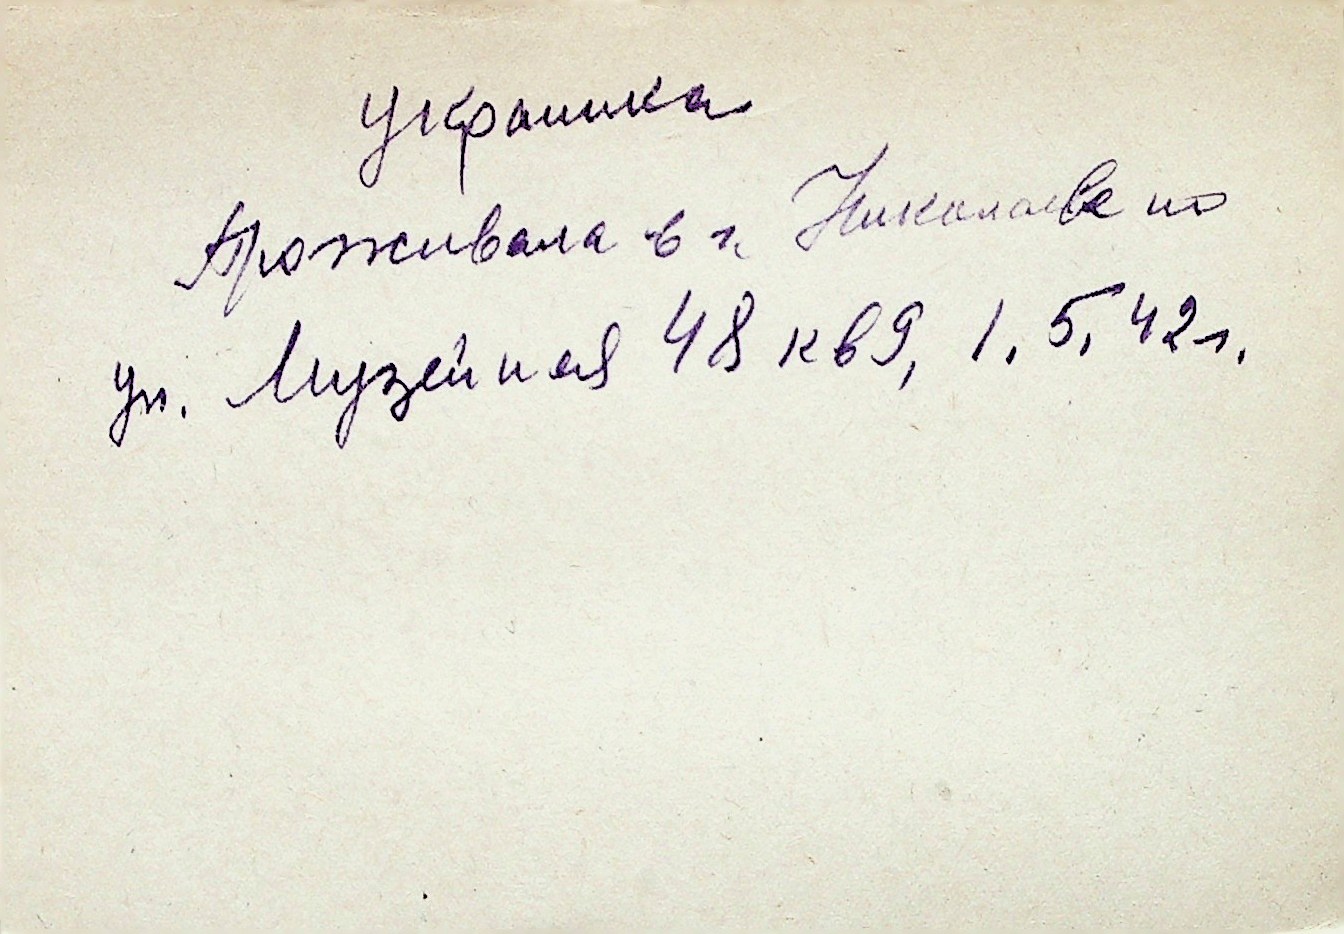 Украинка
Проживала в г. Николаеве по
ул. Музейная 48 кв 9, 1.5.42 г.